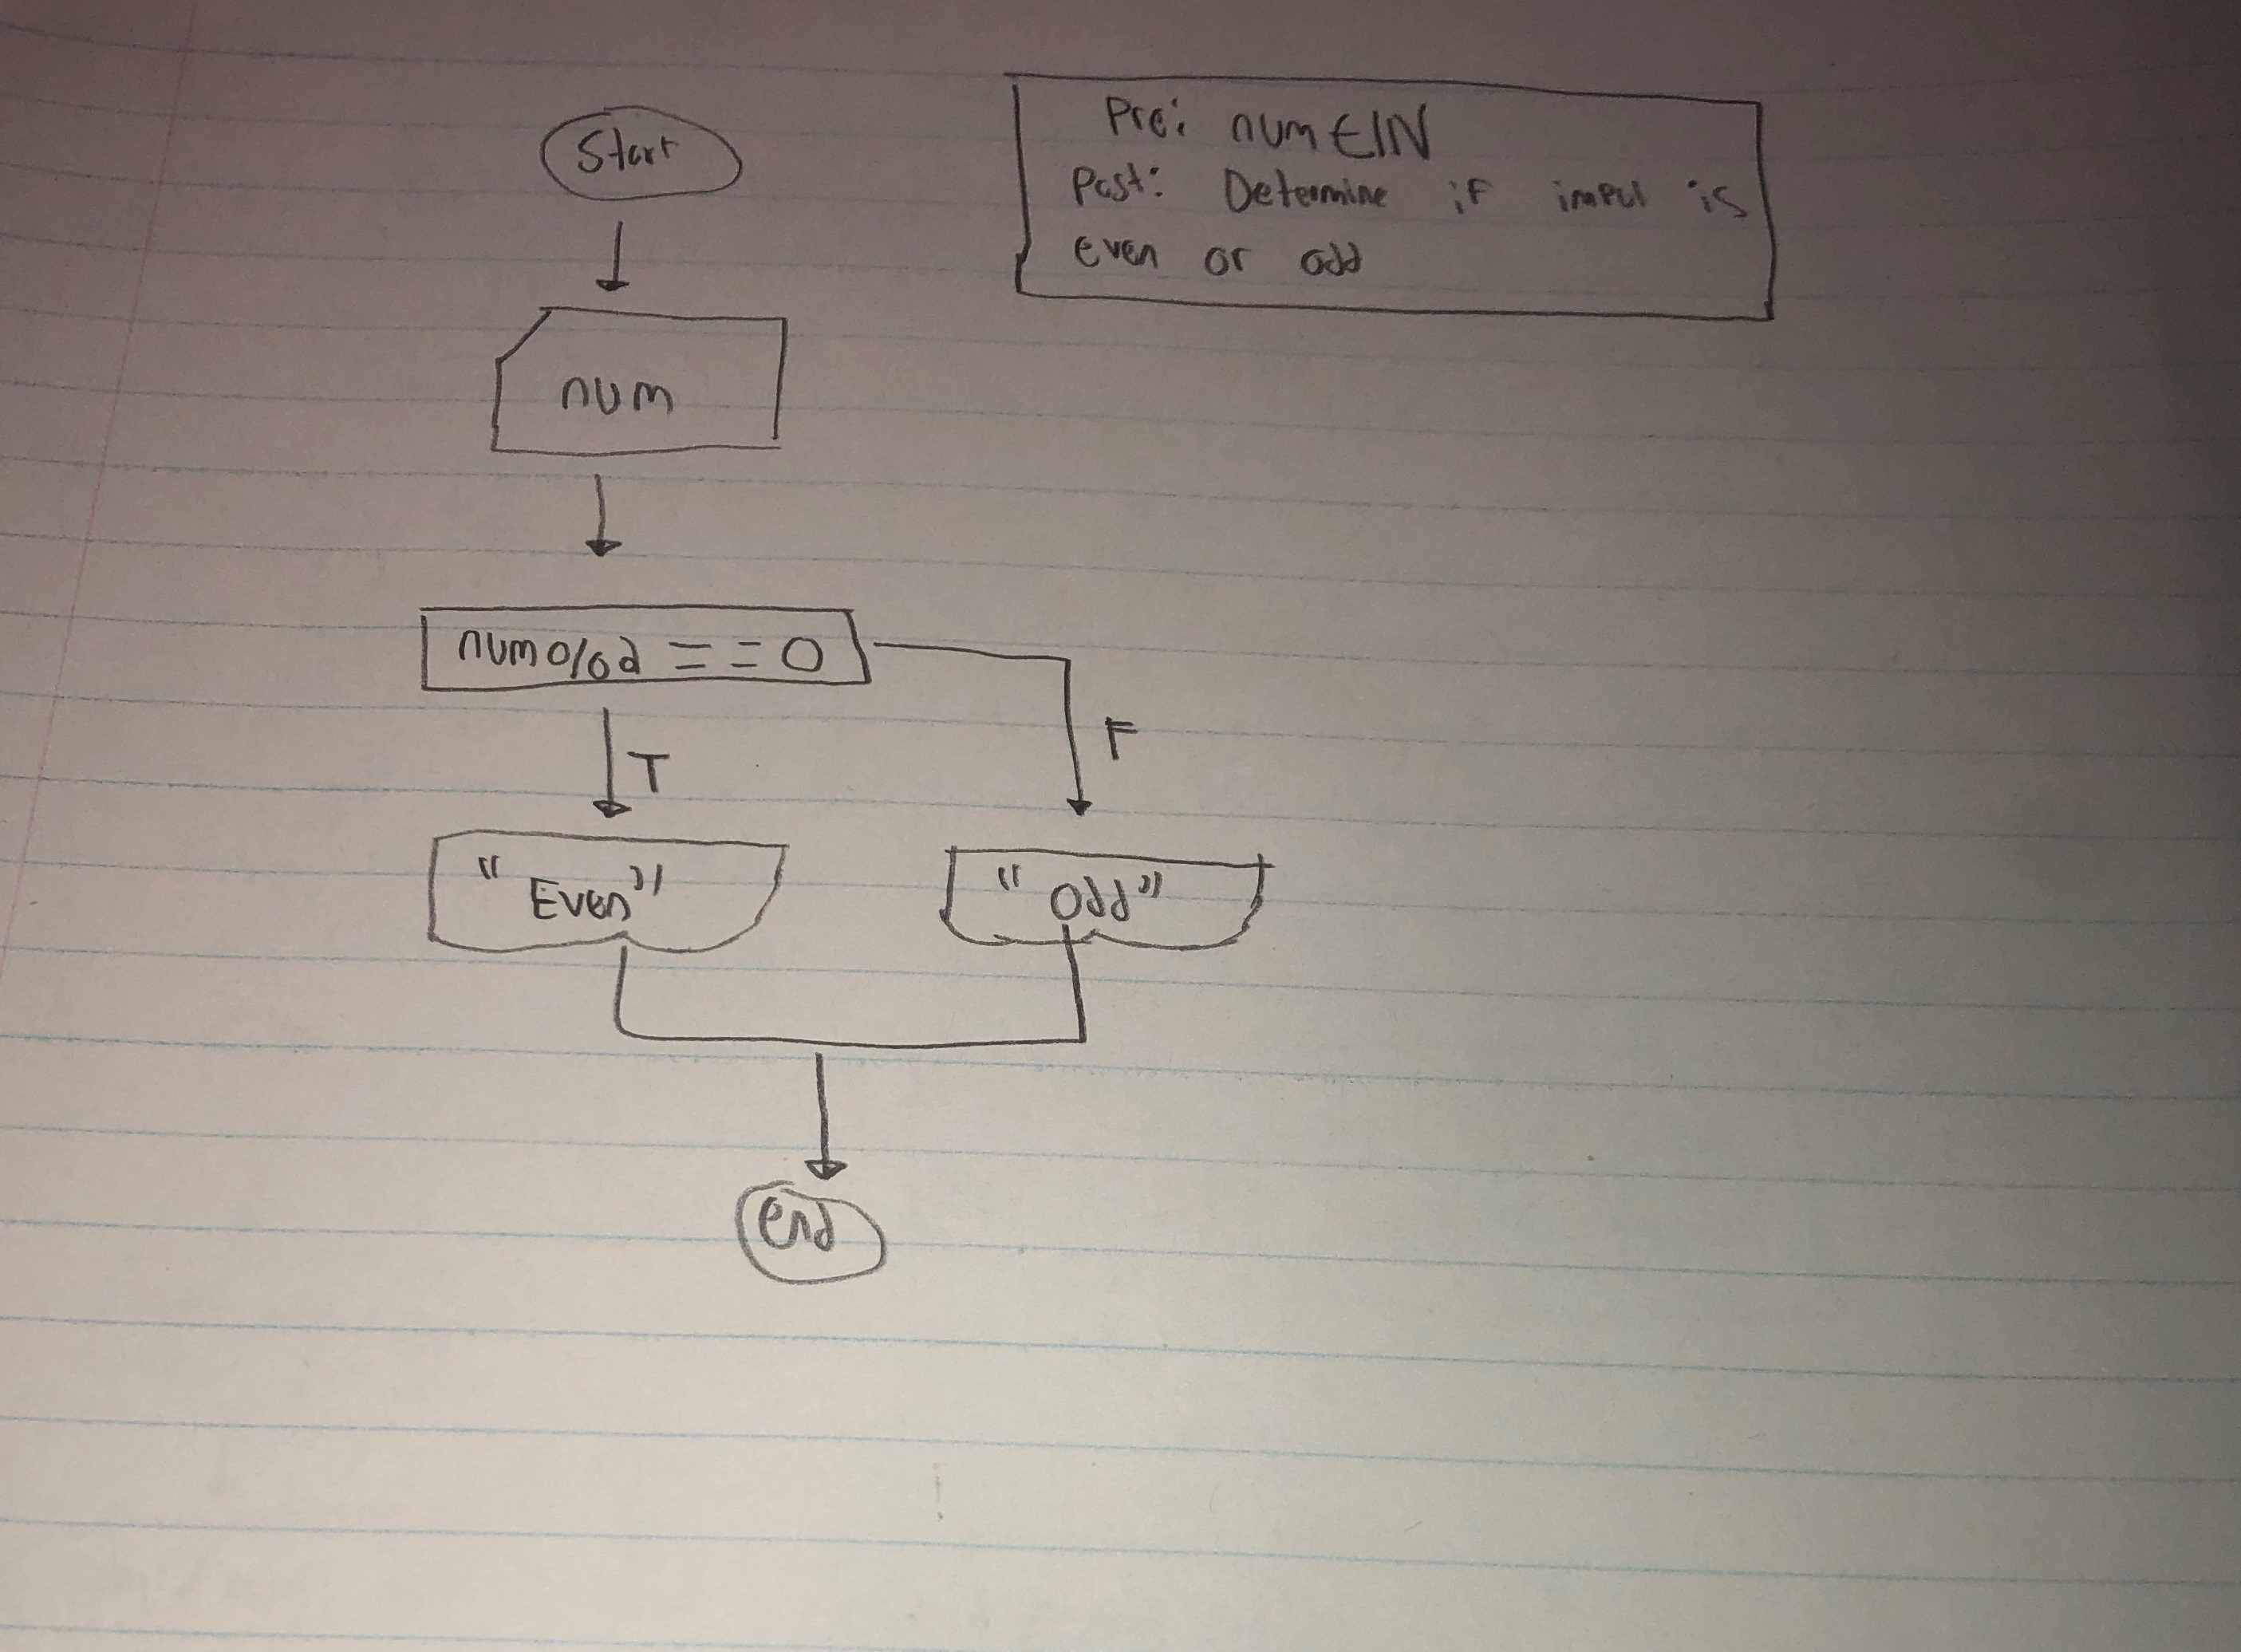 Start
Pre: num ∈ ℕ
Post: Determine if input is
even or odd
num
num % 2 == 0
T
F
"Even"
"Odd"
end